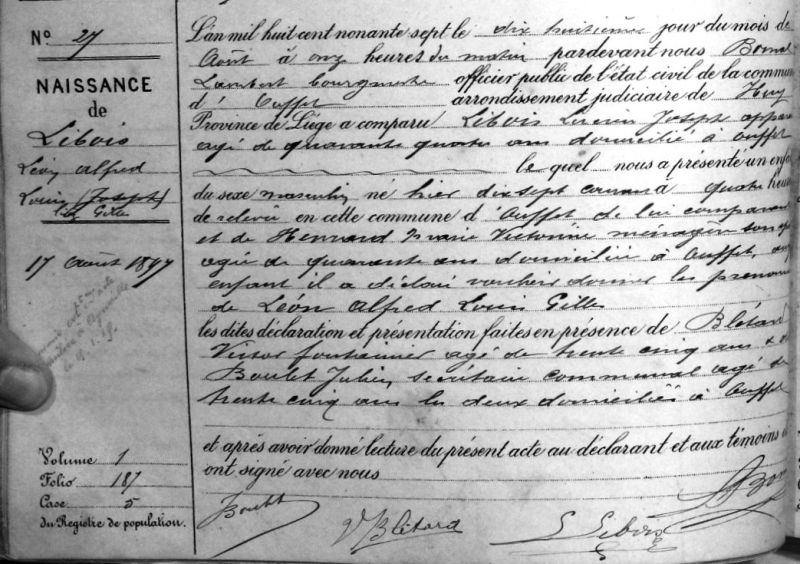 N° 27
NAISSANCE
de
Libois
Léon Alfred
Louis (Joseph)
Gilles
17 Août 1897
Volume 1
Folio 187
Case 5
du Registre de population.
L'an mil huit cent nonante sept le dix huitième jour du mois de
Août à onze heures du matin pardevant nous
Lambert bourgmestre officier public de l'état civil de la commun
d'Ouffet arrondissement judiciaire de Huy
Province de Liége a comparu Libois Joseph
agé de quarante quatre ans domicilié à Ouffet
le quel nous a présenté un enfa
du sexe masculin né hier dix sept courant à quatre heur
de relevée en cette commune d'Ouffet de lui comparant
et de Hennard Marie Victorine ménagère son
agée de quarante ans domiciliée à Ouffet, auq
enfant il a déclaré vouloir donner les prénoms
de Léon Alfred Louis Gilles
les dites déclaration et présentation faites en présence de Blétard
Victor agé de trente cinq ans & de
Boulet Julien, secrétaire communal agé de
trente cinq ans les deux domiciliés à Ouffet
et après avoir donné lecture du présent acte au déclarant et aux témoins
ont signé avec nous
JBoulet
V Blétard
L Libois